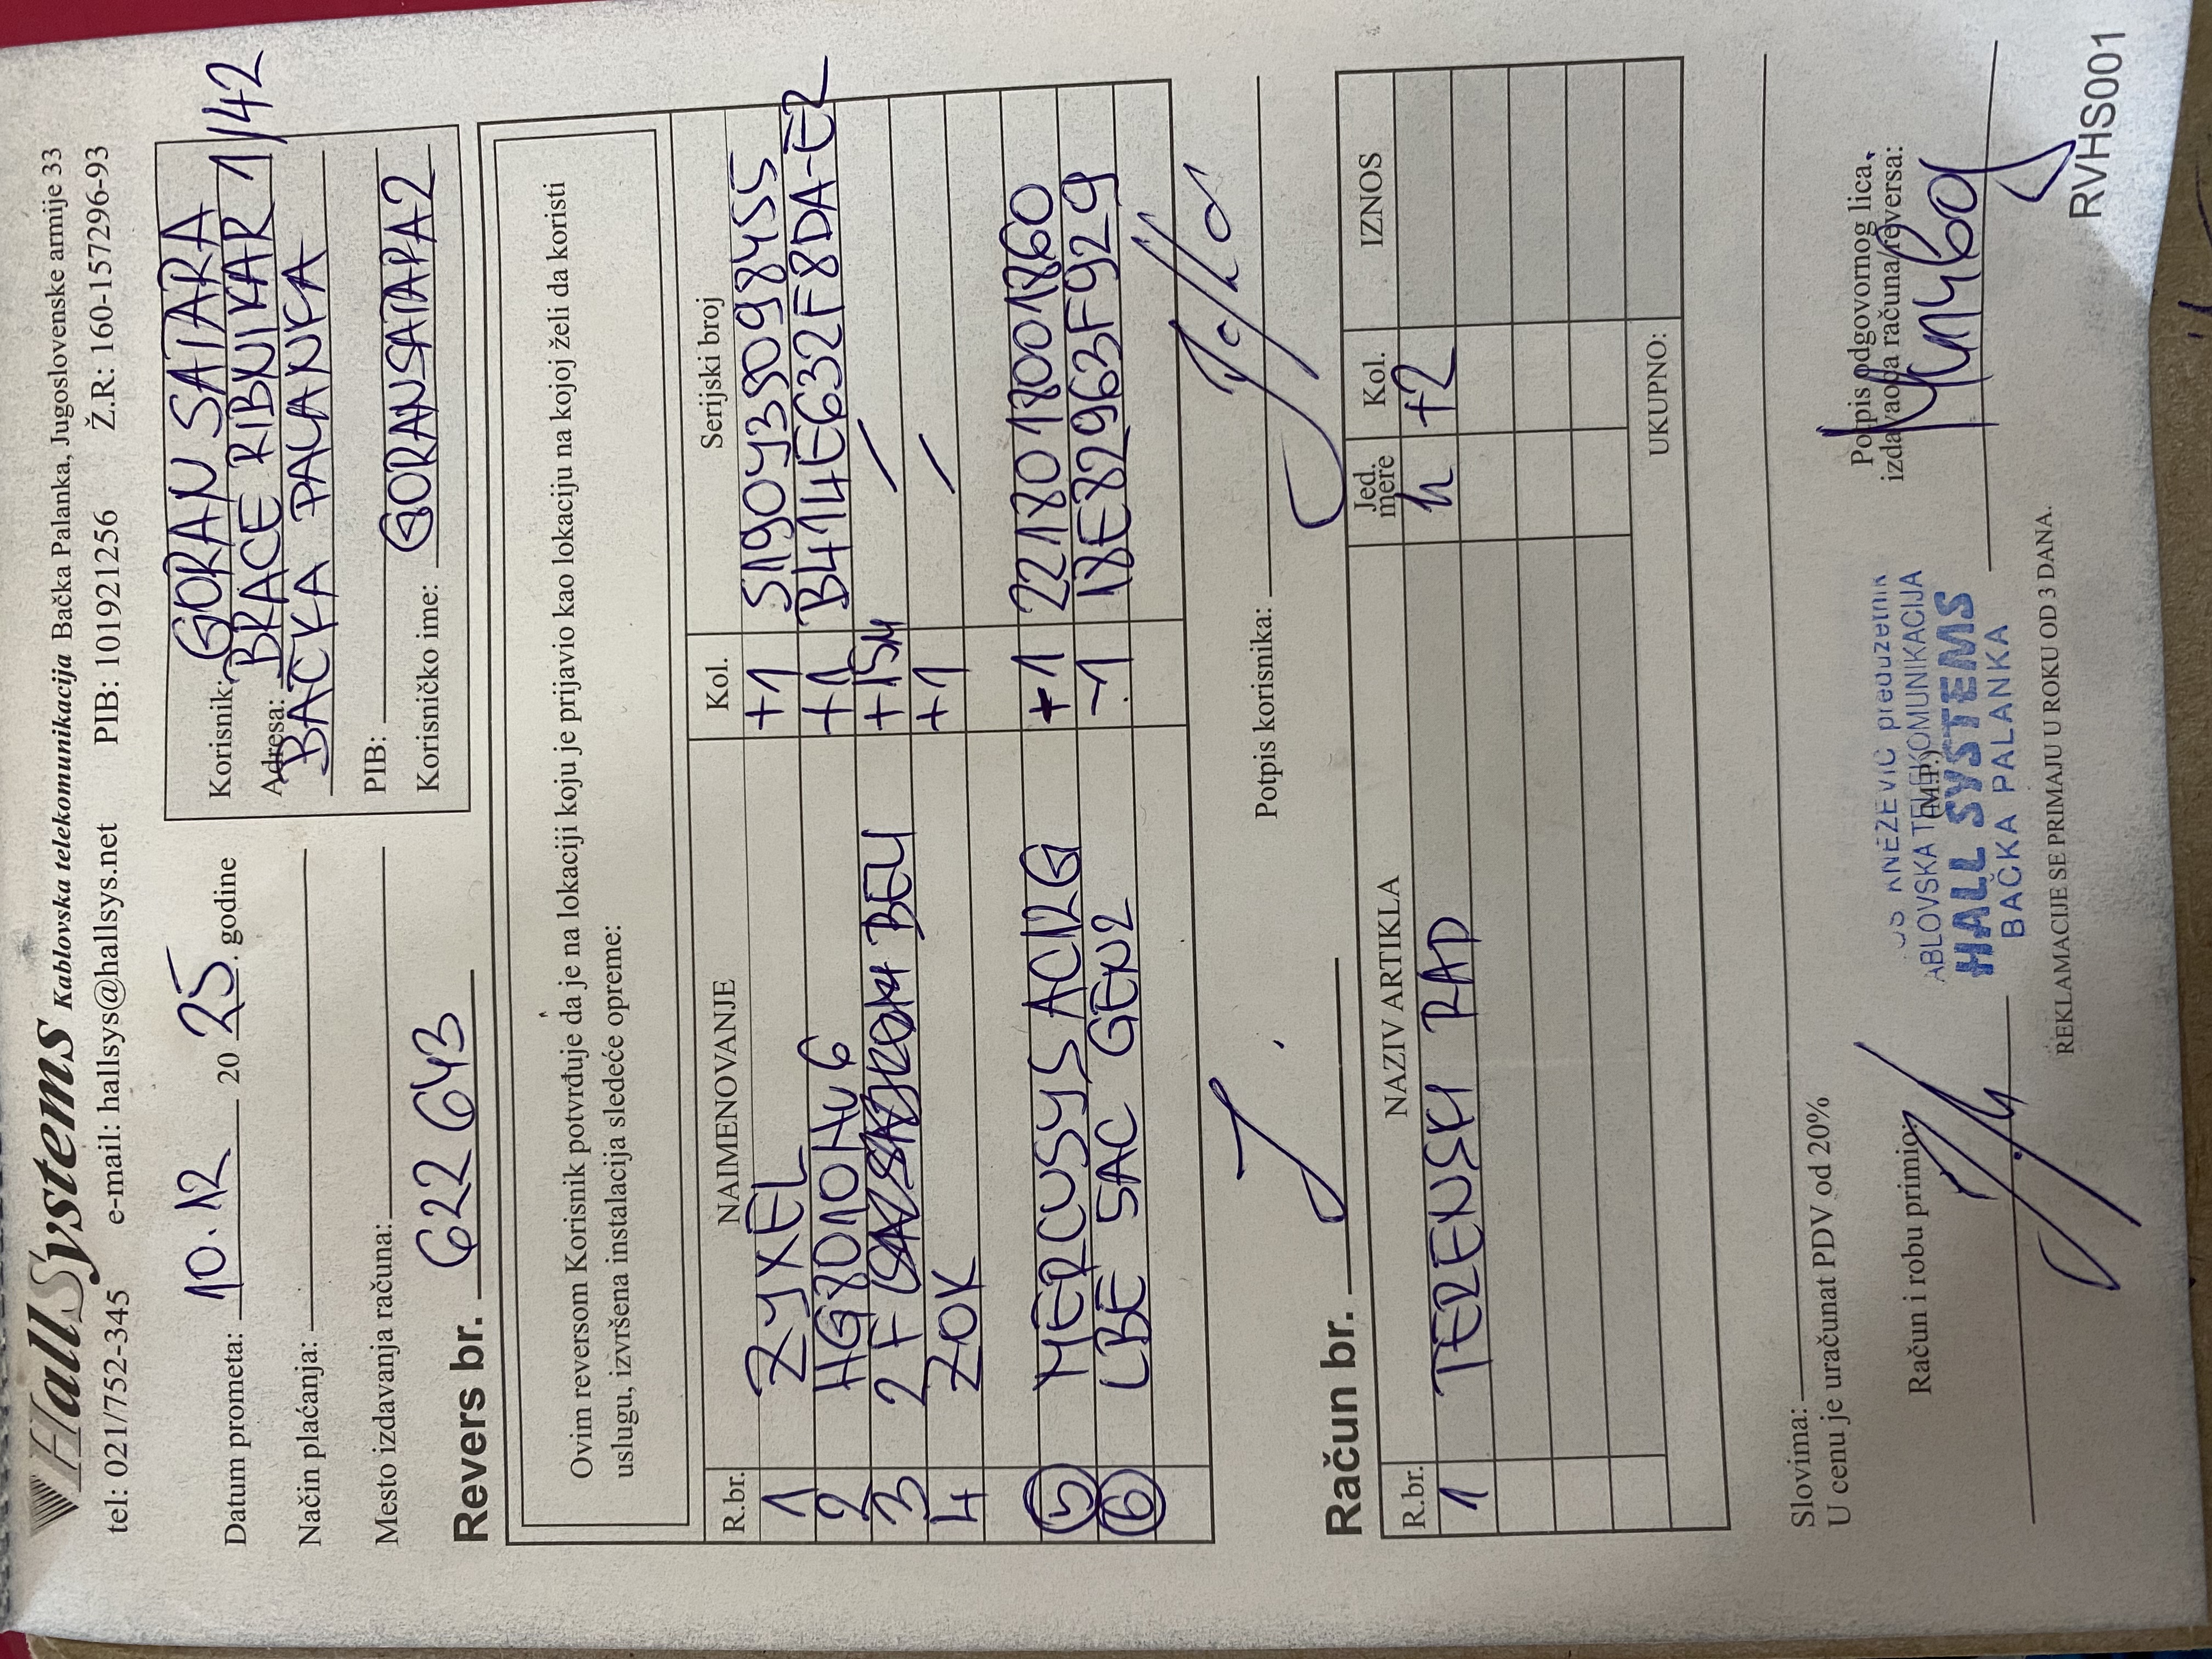 HallSystems Kablovska telekomunikacija Bačka Palanka, Jugoslovenske armije 33
tel: 021/752-345 e-mail: hallsys@hallsys.net PIB: 101921256 Ž.R: 160-157296-93
Datum prometa: 10.12 20 25. godine
Način plaćanja:
Mesto izdavanja računa:
Korisnik: GORAN SATARA
Adresa: BRAĆE RIBNIKAR 1/42
BAČKA PALANKA
PIB:
Korisničko ime: GORANSATARA2
Revers br. 622643
Ovim reversom Korisnik potvrđuje da je na lokaciji koju je prijavio kao lokaciju na kojoj želi da koristi
uslugu, izvršena instalacija sledeće opreme:
R.br. NAIMENOVANJE Kol. Serijski broj
1 ZYXEL +1 S190Y35098455
2 HG8010Hv6 +1 B414E632F8DA-E2
3 2F BELI +15M /
4 ZOK +1 /
5 MERCUSYS AC12G +1 2218017001860
6 LBE 5AC GEN2 -1 18E82963F929
Potpis korisnika:
Račun br.
R.br. NAZIV ARTIKLA Jed. mere Kol. IZNOS
1 TERENSKI RAD h +2
UKUPNO:
Slovima:
U cenu je uračunat PDV od 20%
Račun i robu primio:
(M.P.)
Potpis odgovornog lica,
izdavaoca računa/reversa:
KNEŽEVIĆ preduzetnik
ABLOVSKA TELEKOMUNIKACIJA
HALL SYSTEMS
BAČKA PALANKA
REKLAMACIJE SE PRIMAJU U ROKU OD 3 DANA.
RVHS001